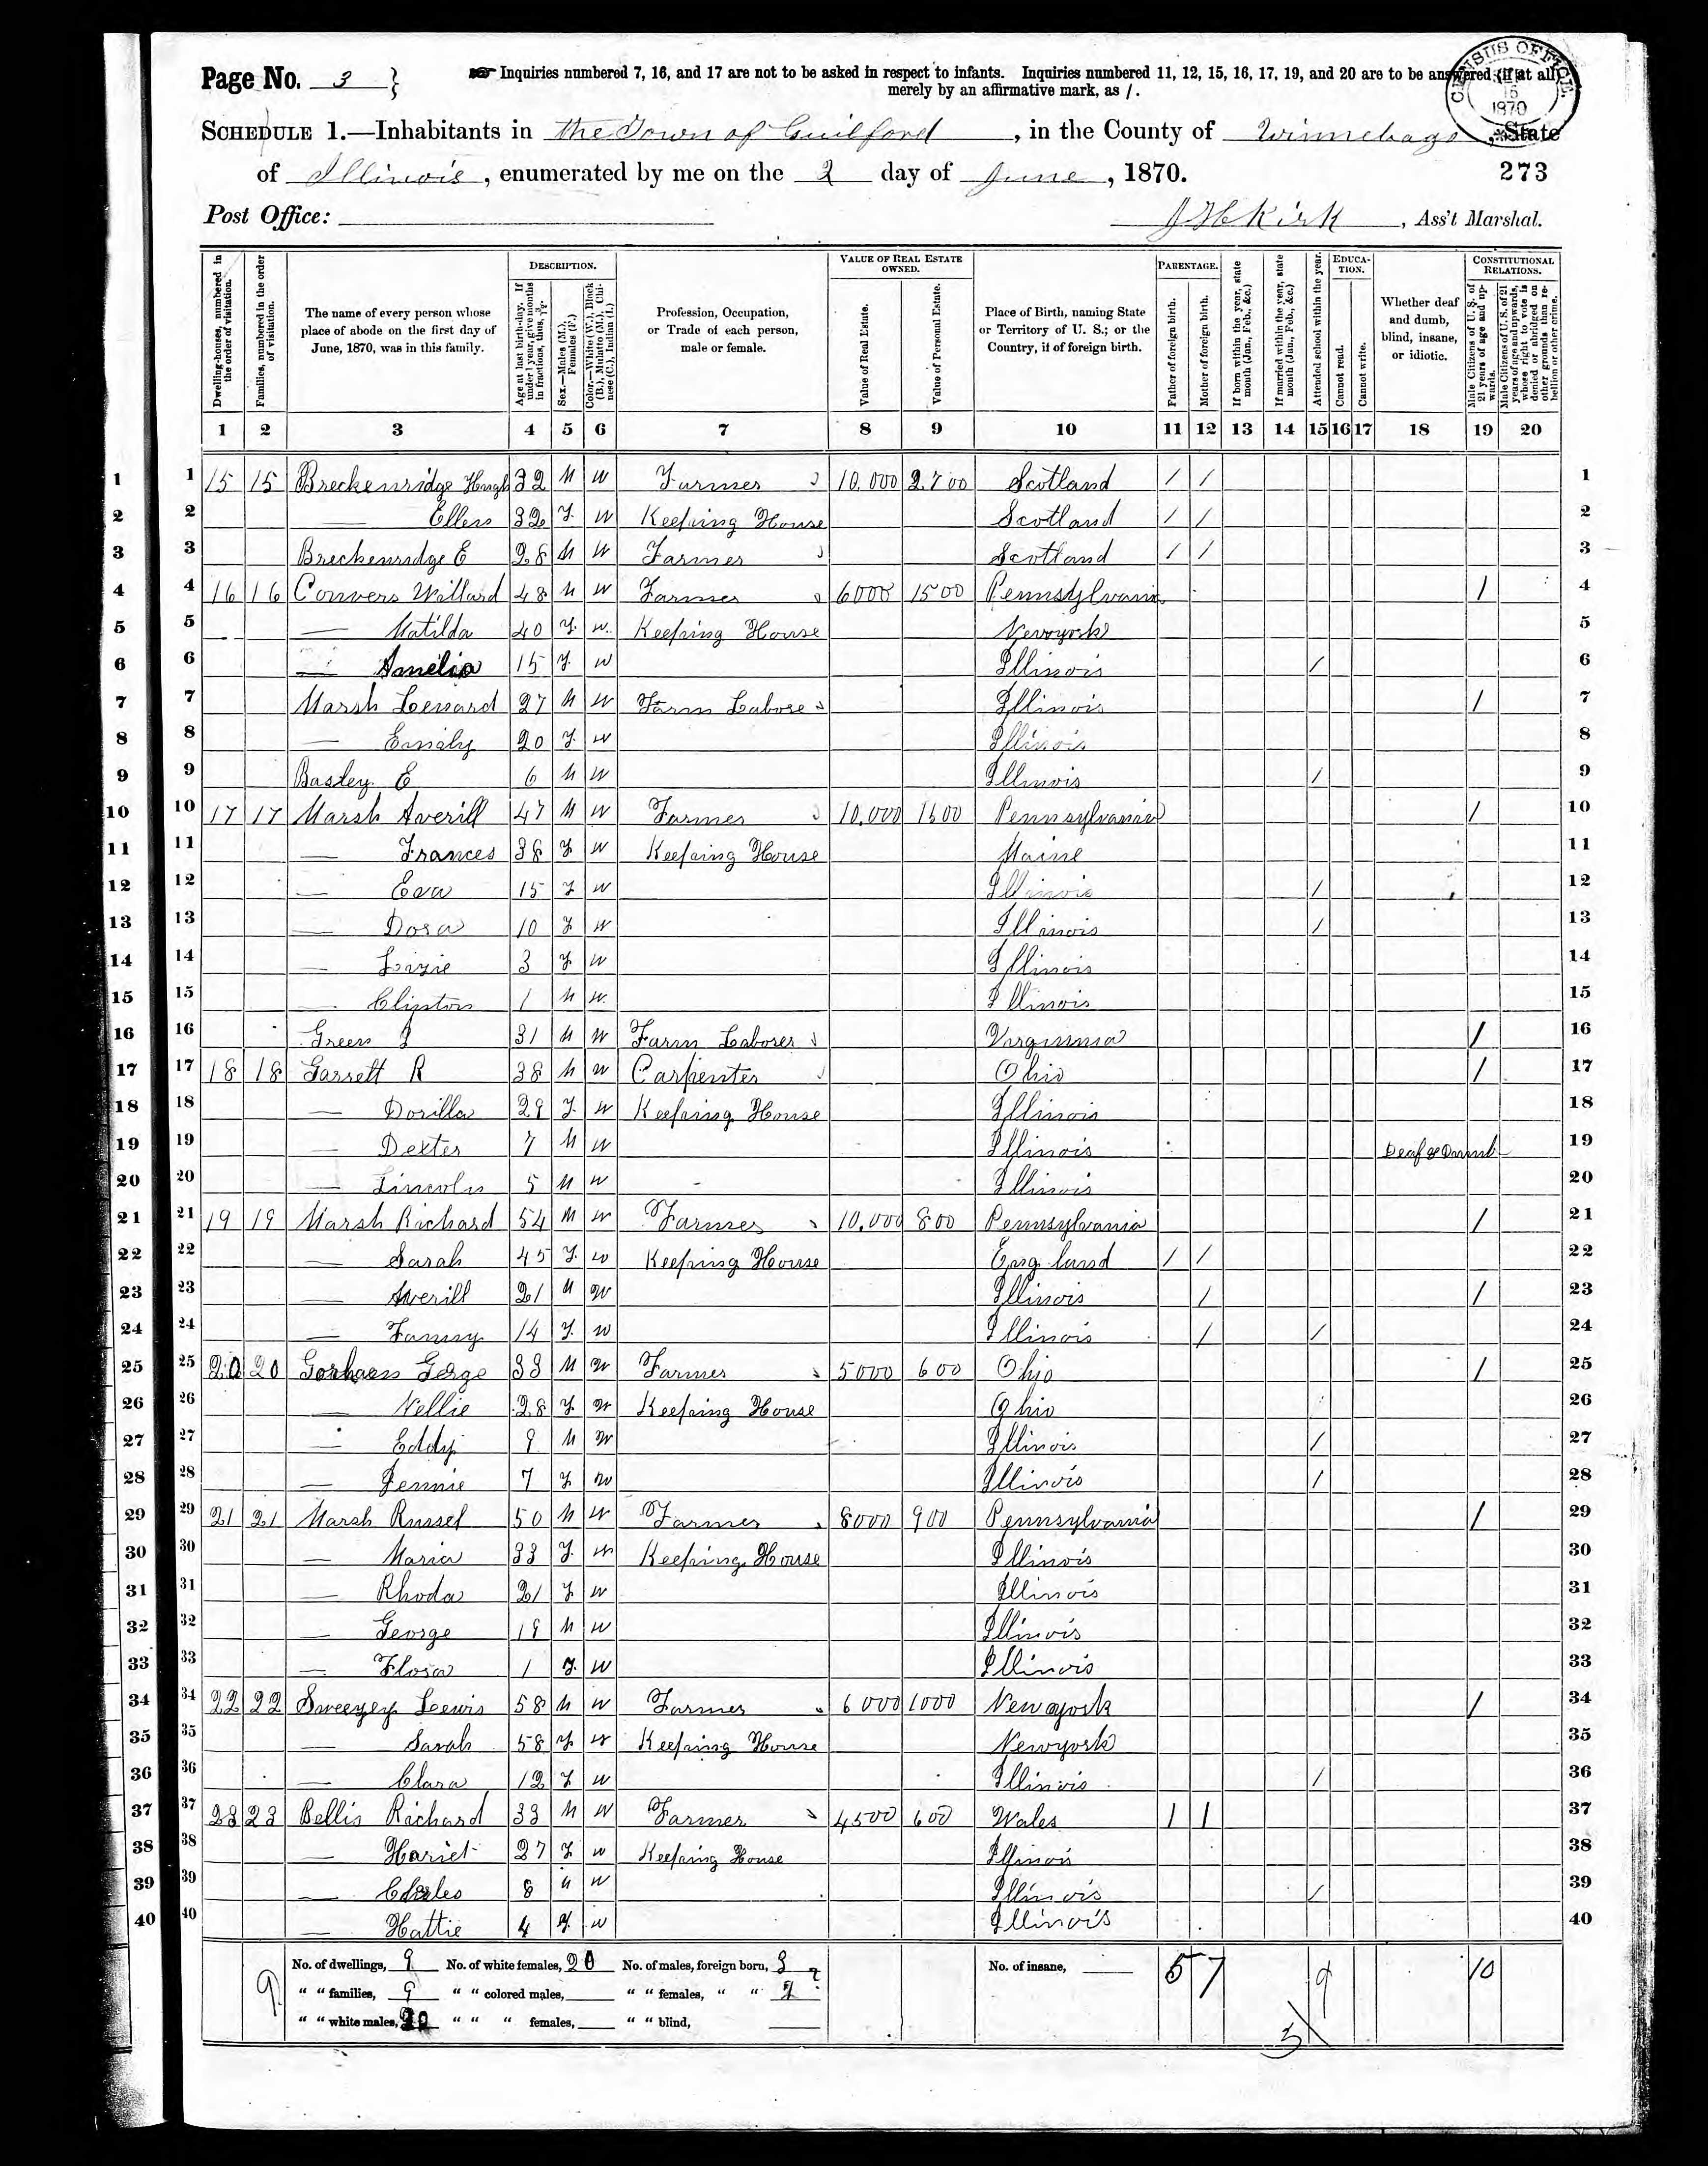 Page No. 3
Inquiries numbered 7, 16, and 17 are not to be asked in respect to infants. Inquiries numbered 11, 12, 15, 16, 17, 19, and 20 are to be answered (if at all)
merely by an affirmative mark, as /.
CENSUS OFFICE. 1870
SCHEDULE 1.—Inhabitants in the Town of Guilford, in the County of Winnebago, State
of Illinois, enumerated by me on the 2 day of June, 1870.
273
Post Office:
J H Kirk, Ass't Marshal.
Dwelling-houses, numbered in the order of visitation.
Families, numbered in the order of visitation.
The name of every person whose place of abode on the first day of June, 1870, was in this family.
DESCRIPTION.
Age at last birth-day. If under 1 year, give months in fractions, thus, 3/12.
Sex.—Males (M.), Females (F.)
Color.—White (W.), Black (B.), Mulatto (M.), Chinese (C.), Indian (I.)
Profession, Occupation, or Trade of each person, male or female.
VALUE OF REAL ESTATE OWNED.
Value of Real Estate.
Value of Personal Estate.
Place of Birth, naming State or Territory of U. S.; or the Country, if of foreign birth.
PARENTAGE.
Father of foreign birth.
Mother of foreign birth.
If born within the year, state month (Jan., Feb., &c.)
If married within the year, state month (Jan., Feb., &c.)
Attended school within the year.
EDUCATION.
Cannot read.
Cannot write.
Whether deaf and dumb, blind, insane, or idiotic.
CONSTITUTIONAL RELATIONS.
Male Citizens of U. S. of 21 years of age and upwards.
Male Citizens of U. S. of 21 years of age and upwards, whose right to vote is denied or abridged on other grounds than rebellion or other crime.
1 2 3 4 5 6 7 8 9 10 11 12 13 14 15 16 17 18 19 20
1 1 15 15 Breckenridge Hugh 32 M W Farmer 10,000 2700 Scotland / / 1
2 2 — Ellen 32 F W Keeping House Scotland / / 2
3 3 Breckenridge E 28 M W Farmer Scotland / / 3
4 4 16 16 Convers Willard 48 M W Farmer 6000 1500 Pennsylvania / 4
5 5 — Matilda 40 F W Keeping House Newyork 5
6 6 — Amelia 15 F W Illinois / 6
7 7 Marsh Lenard 27 M W Farm Labore Illinois / 7
8 8 — Emaly 20 F W Illinois 8
9 9 Basley E 6 M W Illinois / 9
10 10 17 17 Marsh Averill 47 M W Farmer 10,000 1500 Pennsylvania / 10
11 11 — Frances 38 F W Keeping House Maine 11
12 12 — Eva 15 F W Illinois / 12
13 13 — Dora 10 F W Illinois / 13
14 14 — Lizzie 3 F W Illinois 14
15 15 — Clinton 1 M W Illinois 15
16 16 Green J 31 M W Farm Laborer Virginnia / 16
17 17 18 18 Garrett R 38 M W Carpenter Ohio / 17
18 18 — Dorilla 29 F W Keeping House Illinois 18
19 19 — Dexter 7 M W Illinois Deaf & Dumb 19
20 20 — Lincoln 5 M W Illinois 20
21 21 19 19 Marsh Richard 54 M W Farmer 10,000 800 Pennsylvania / 21
22 22 — Sarah 45 F W Keeping House England / / 22
23 23 — Averill 21 M W Illinois / / 23
24 24 — Fanny 14 F W Illinois / / 24
25 25 20 20 Gorham Gerge 33 M W Farmer 5000 600 Ohio / 25
26 26 — Nellie 28 F W Keeping House Ohio 26
27 27 — Eddy 9 M W Illinois / 27
28 28 — Jennie 7 F W Illinois / 28
29 29 21 21 Marsh Russel 50 M W Farmer 8000 900 Pennsylvania / 29
30 30 — Maria 33 F W Keeping House Illinois 30
31 31 — Rhoda 21 F W Illinois 31
32 32 — George 19 M W Illinois 32
33 33 — Flora 1 F W Illinois 33
34 34 22 22 Sweezey Leewis 58 M W Farmer 6000 1000 Newyork / 34
35 35 — Sarah 58 F W Keeping House Newyork 35
36 36 — Clara 12 F W Illinois / 36
37 37 23 23 Bellis Richard 33 M W Farmer 4500 600 Wales / / 37
38 38 — Hariet 27 F W Keeping House Illinois 38
39 39 — Charles 8 M W Illinois / 39
40 40 — Hattie 4 F W Illinois 40
9 No. of dwellings, 9 No. of white females, 20 No. of males, foreign born, 3 No. of insane, 5 7 9 10
" " families, 9 " " colored males, " " females, " " 2 ?
" " white males, 20 " " " females, " " blind,
5